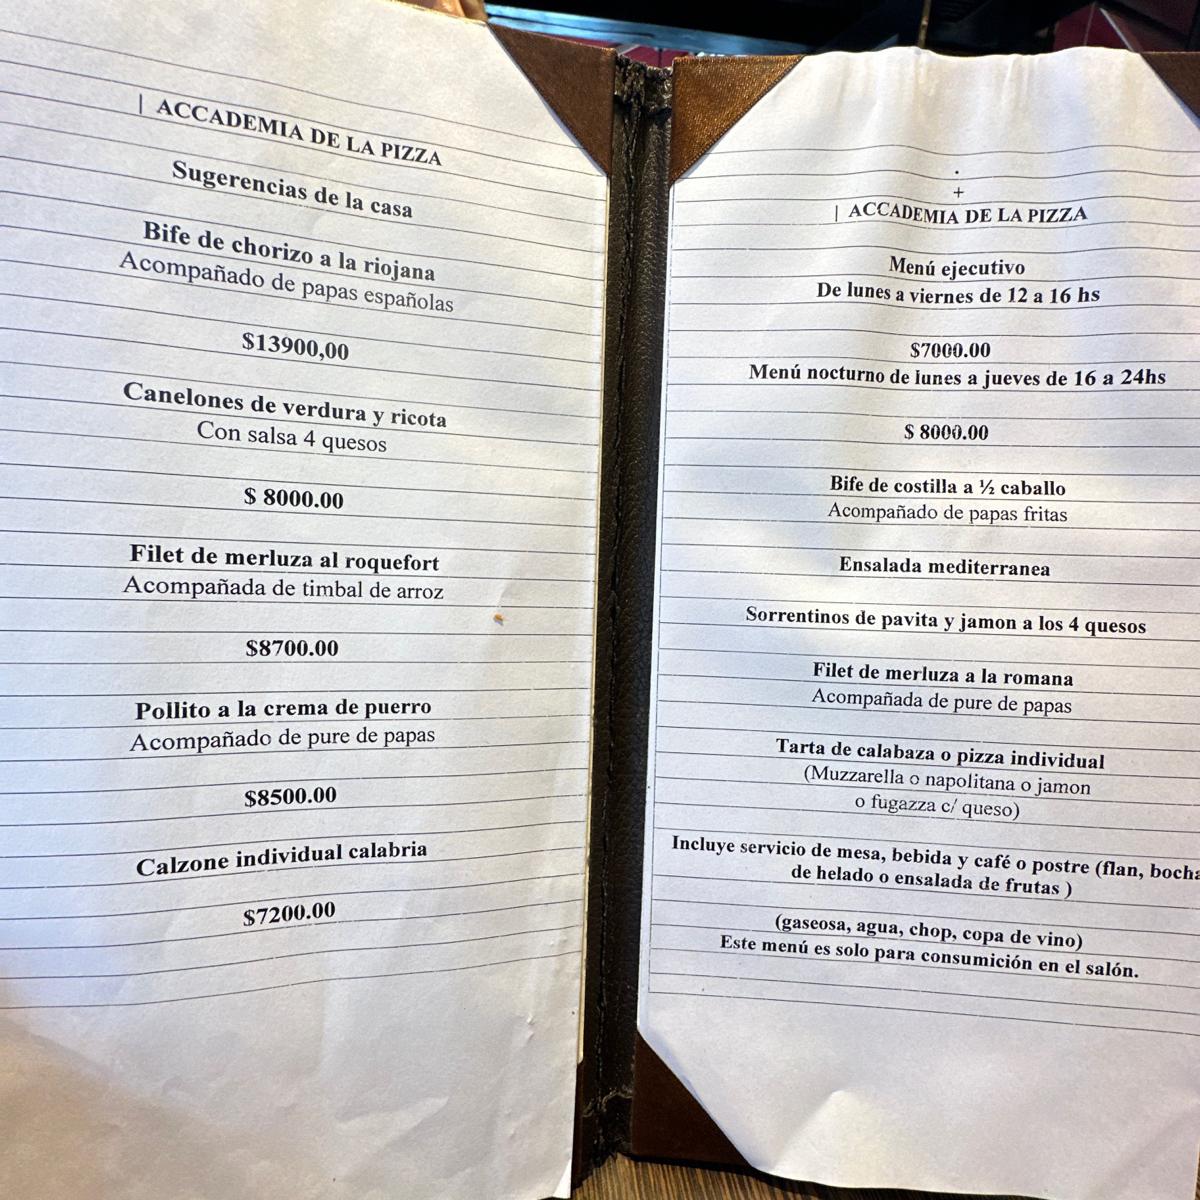 | ACCADEMIA DE LA PIZZA
Sugerencias de la casa
Bife de chorizo a la riojana
Acompañado de papas españolas
$13900,00
Canelones de verdura y ricota
Con salsa 4 quesos
$ 8000.00
Filet de merluza al roquefort
Acompañada de timbal de arroz
$8700.00
Pollito a la crema de puerro
Acompañado de pure de papas
$8500.00
Calzone individual calabria
$7200.00
.
+
| ACCADEMIA DE LA PIZZA
Menú ejecutivo
De lunes a viernes de 12 a 16 hs
$7000.00
Menú nocturno de lunes a jueves de 16 a 24hs
$ 8000.00
Bife de costilla a ½ caballo
Acompañado de papas fritas
Ensalada mediterranea
Sorrentinos de pavita y jamon a los 4 quesos
Filet de merluza a la romana
Acompañada de pure de papas
Tarta de calabaza o pizza individual
(Muzzarella o napolitana o jamon
o fugazza c/ queso)
Incluye servicio de mesa, bebida y café o postre (flan, bocha
de helado o ensalada de frutas )
(gaseosa, agua, chop, copa de vino)
Este menú es solo para consumición en el salón.